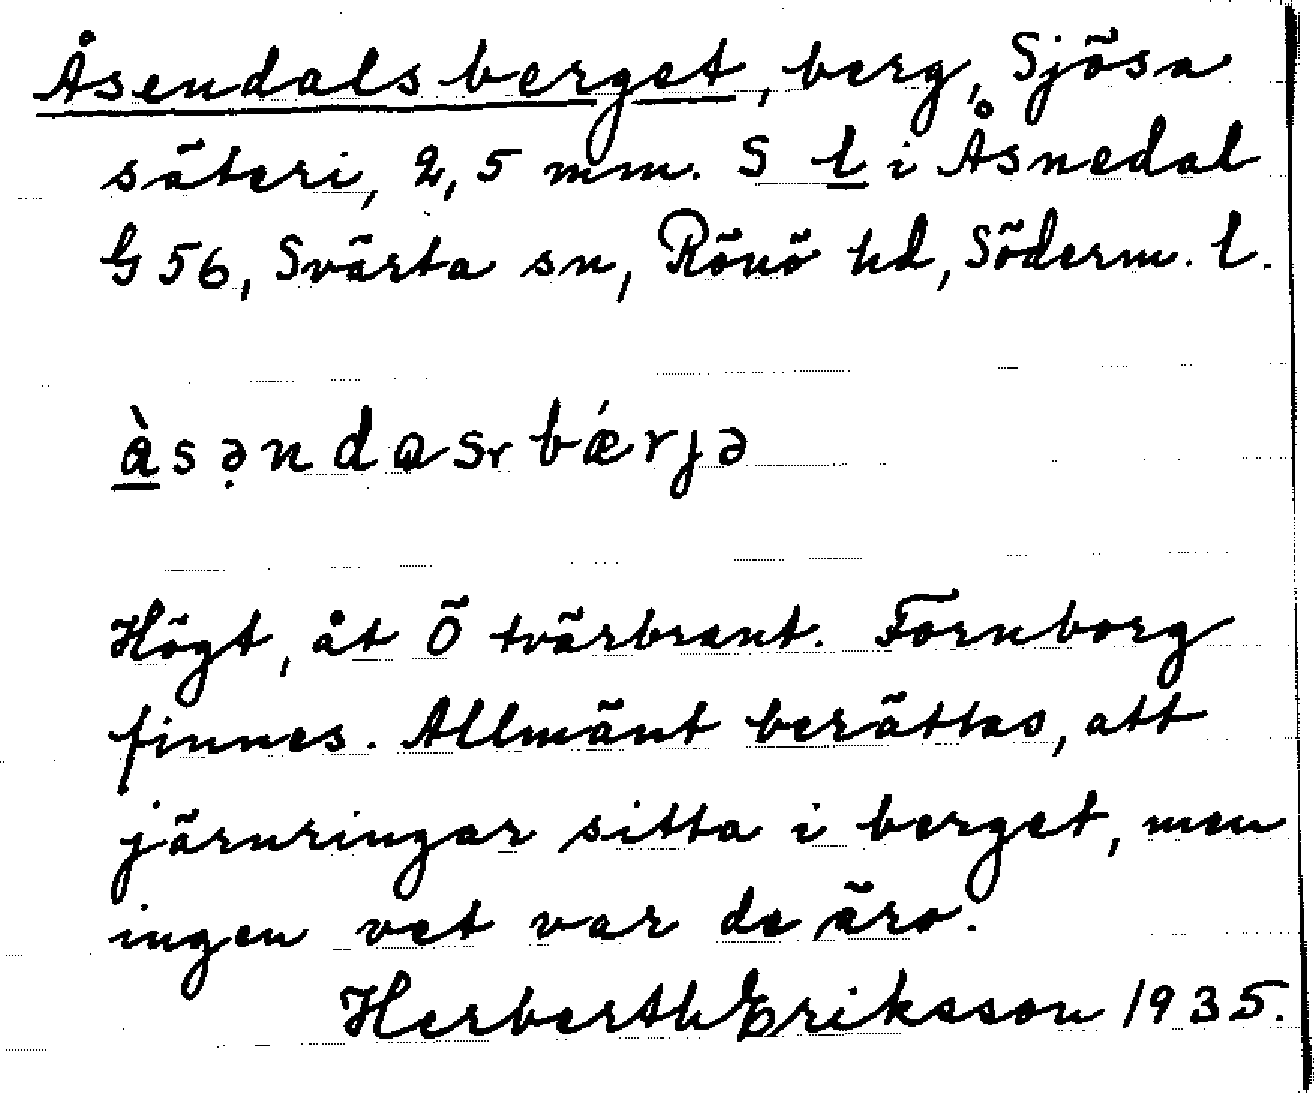 Åsendalsberget, berg, Sjösa
säteri, 2,5 mm. S l i Åsnedal
G 56, Svärta sn, Rönö hd, Söderm. l.
ὰsə̣ndɑsrbǽrjə
Högt, åt Ö tvärbrant. Fornborg
finnes. Allmänt berättas, att
järnringar sitta i berget, men
ingen vet var de äro.
Herberth Eriksson 1935.